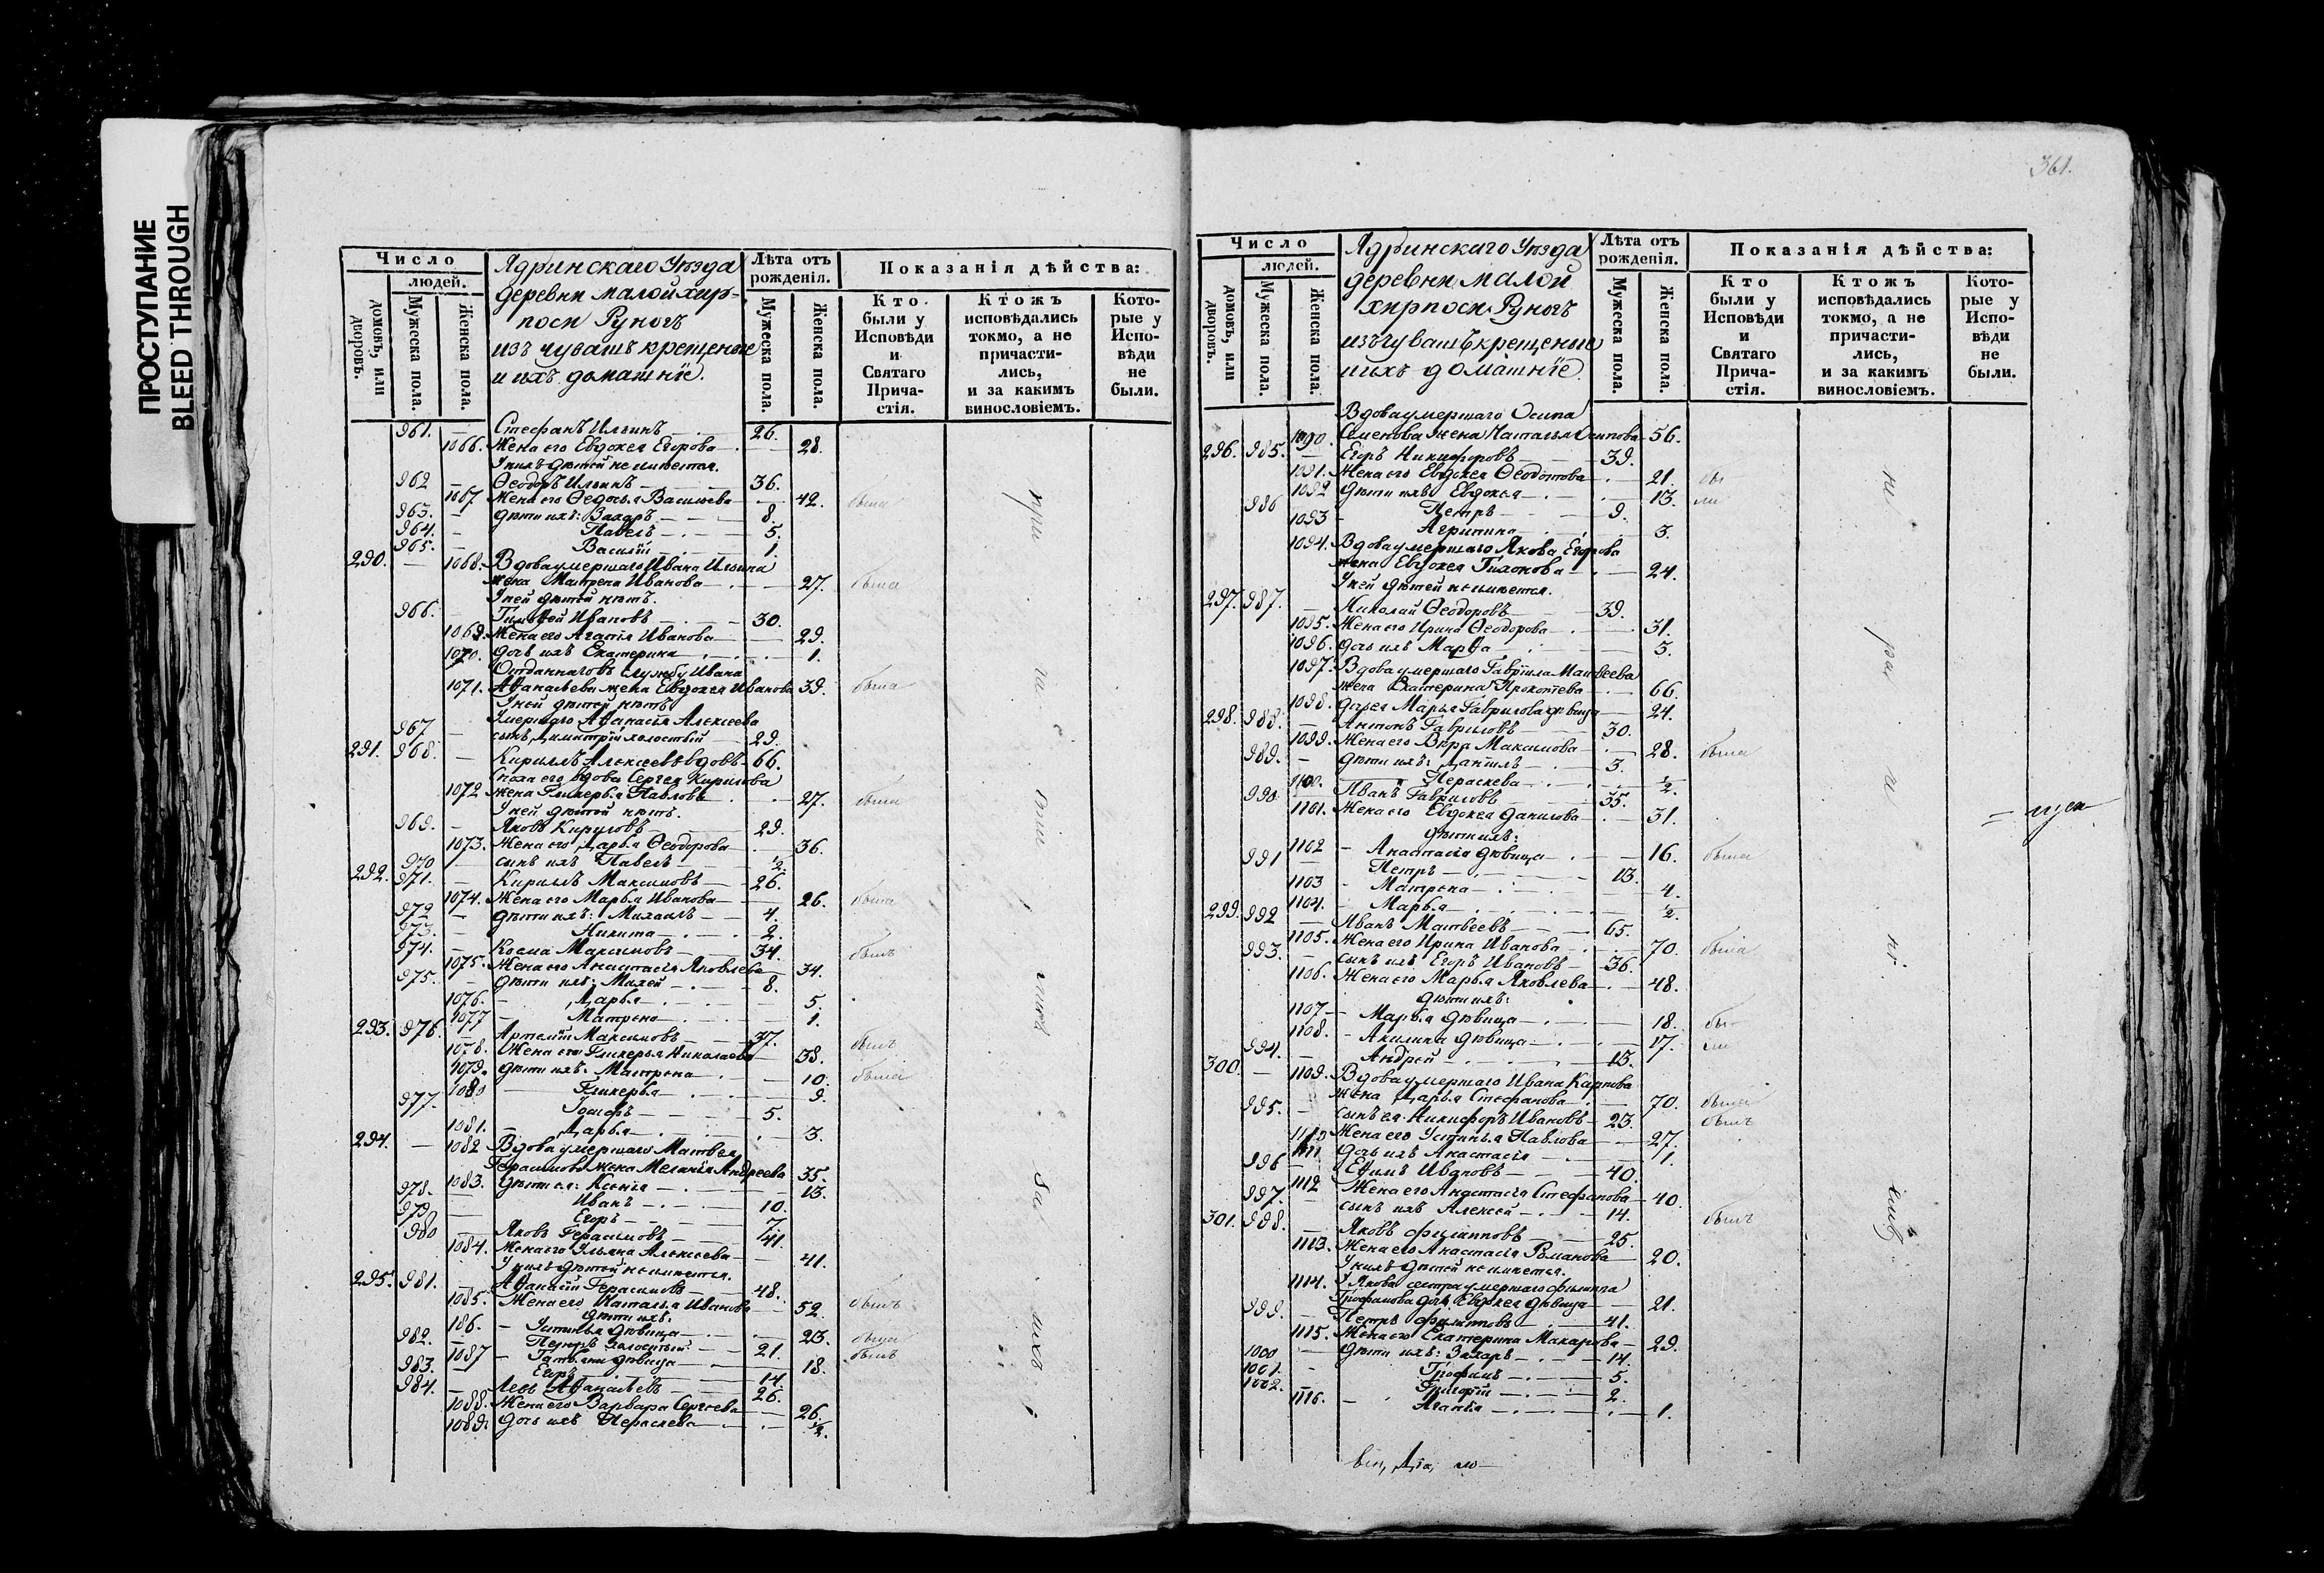 ПРОСТУПАНИЕ
BLEED THROUGH
Число
людей.
домовъ, или дворовъ.
Мужеска пола.
Женска пола.
Ядринскаго Уѣзда
деревни малой хир-
поси
изъ чувашъ крещеные
и ихъ домашніе.
Лѣта отъ рожденія.
Мужеска пола.
Женска пола.
Показанія дѣйства:
Кто были у Исповѣди и Святаго Причастія.
Ктожъ исповѣдались токмо, а не причастились, и за какимъ винословіемъ.
Которые у Исповѣди не были.
961. — Стефанъ Ильинъ — 26.
1066. Жена его Евдокея Егорова — 28.
У нихъ дѣтей не имѣется.
962 — Ѳеодоръ Ильинъ — 36.
1067 Жена его Ѳедосья Васильева — 42. была
963. — дѣти ихъ: Захаръ — 8.
964. — Павелъ — 5.
965. — Василій — 1.
290. — 1068. Вдова умершаго Ивана Ильина
жена Матрена Иванова — 27. была
У ней дѣтей нѣтъ.
966. Тимоѳей Ивановъ — 30.
1069. Жена его Агафія Иванова — 29.
1070. дочь ихъ Екатерина — 1.
Отданнаго въ службу Ивана
1071. Аѳанасьева жена Евдокея Иванова 39. была
У ней дѣтей нѣтъ.
Умершаго Аѳанасія Алексеева
967 — сынъ Димитрій холостый — 29.
291. 968. — Кириллъ Алексеевъ вдовъ — 66.
Сноха его вдова Сергея Кирилова
1072 жена Гликерья Павлова — 27. была
У ней дѣтей нѣтъ.
969. — Яковъ Кириловъ — 29.
1073. Жена его Дарья Ѳеодорова — 36.
970 — сынъ ихъ Павелъ — ½
292. 971. — Кириллъ Максимовъ — 26.
1074. Жена его Марья Иванова — 26. была
972 — дѣти ихъ: Михаилъ — 4.
973. — Никита — 2.
974. — Косма Максимовъ — 34. былъ
1075. Жена его Анастасія Яковлева — 34.
975. — дѣти ихъ: Михей — 8.
1076. — Дарья — 5.
1077 — Матрена — 1.
293. 976. — Артемій Максимовъ — 37. былъ
1078. Жена его Гликерья Николаева — 38.
1079. дѣти ихъ: Матрена — 10. была
1080 — Гликерья — 9.
977. — 5.
1081. — Дарья — 3.
294. — 1082 Вдова умершаго Матвея
Герасимова жена Меланія Андреева 35.
1083. дѣти ея: Ксенія — 13.
978. — Иванъ — 10.
979 — Егоръ — 7.
980 — Яковъ Герасимовъ — 41.
1084. Жена его Ульяна Алексеева — 41.
У нихъ дѣтей не имѣется.
295. 981. — Аѳанасій Герасимовъ — 48.
1085. Жена его Наталья Иванова — 52. былъ
дѣти ихъ:
186. — Устинья дѣвица — 23.
982. — Петръ холостый — 21. была
1087 — Татьяна дѣвица — 18. былъ
983. — Егоръ — 14.
984. — Левъ Аѳанасьевъ — 26.
1088. Жена его Варвара Сергеева — 26.
1089. дочь ихъ Пераскева — ½.
361.
Число
людей.
домовъ, или дворовъ.
Мужеска пола.
Женска пола.
Ядринскаго Уѣзда
деревни малой
хирпоси
изъ чувашъ крещеные
и ихъ домашніе.
Лѣта отъ рожденія.
Мужеска пола.
Женска пола.
Показанія дѣйства:
Кто были у Исповѣди и Святаго Причастія.
Ктожъ исповѣдались токмо, а не причастились, и за какимъ винословіемъ.
Которые у Исповѣди не были.
Вдова умершаго Осипа
1090. Семенова жена Наталья Осипова 56.
296. 985. — Егоръ Никифоровъ — 39.
1091. Жена его Евдокея Ѳеодотова — 21. бы
1092 дѣти ихъ Евдокея — 13. ли
986 Петръ — 9.
1093 Агрипина — 3.
1094. Вдова умершаго Якова Егорова
жена Евдокея Тихонова — 24.
У ней дѣтей не имѣется.
297. 987. — Николай Ѳеодоровъ — 39.
1095. Жена его Ирина Ѳеодорова — 31.
1096. дочь ихъ Марѳа — 3.
1097. Вдова умершаго Гавріила Матвеева
жена Екатерина Прокопіева — 66.
1098. дочь ея Марья Гаврилова дѣвица — 24.
298. 988. — Антонъ Гавриловъ — 30.
1099. Жена его Вѣра Максимова — 28. была
989. — дѣти ихъ: Даніилъ — 3.
1100. — Пераскева — ½.
990 Иванъ Гавриловъ — 35.
1101. Жена его Евдокея Данилова — 31.
дѣти ихъ:
1102 — Анастасія дѣвица — 16. была
991 — Петръ — 13.
1103 — Матрена — 4.
1104. — Марья — ½.
299. 992 — Иванъ Матвеевъ — 65.
1105. Жена его Ирина Иванова — 70. была
993. — сынъ ихъ Егоръ Ивановъ — 36.
1106. Жена его Марья Яковлева — 48.
дѣти ихъ:
1107 — Марья дѣвица — 18. бы-
1108. — Акилина дѣвица — 17. ли
994. — Андрей — 13.
300. — 1109. Вдова умершаго Ивана Карпова
жена Дарья Стефанова — 70. была
995. — сынъ ея Никифоръ Ивановъ — 23. былъ
1110 Жена его Устинья Павлова — 27.
1111 дочь ихъ Анастасія — 1.
996 — Ефимъ Ивановъ — 40.
1112 Жена его Анастасія Стефанова — 40.
997. сынъ ихъ Алексей — 14.
301. 998. — Яковъ Филипповъ — 25. былъ
1113. Жена его Анастасія Романова — 20.
У нихъ дѣтей не имѣется.
1114. У Якова сестра умершаго Филиппа
Трофимова дочь Евдокея дѣвица — 21.
999. — Петръ Филипповъ — 41.
1115. Жена его Екатерина Макарова — 29.
1000 — дѣти ихъ: Захаръ — 14.
1001. — Трофимъ — 5.
1002. — Григорій — 2.
1116. — Агафья — 1.